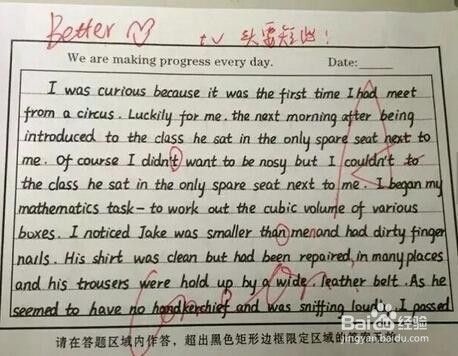 Better
tv 头要短些!
We are making progress every day. Date:
I was curious because it was the first time I had meet
from a circus. Luckily for me. the next morning after being
introduced to the class he sat in the only spare seat next to
me. Of course I didn't want to be nosy but I couldn't to
the class he sat in the only spare seat next to me. I began my
mathematics task- to work out the cubic volume of various
boxes. I noticed Jake was smaller than me and had dirty finger
nails. His shirt was clean but had been repaired, in many places
and his trousers were hold up by a wide, leather belt. As he
seemed to have no handkerchief and was sniffing loudly. I passed
请在答题区域内作答,超出黑色矩形边框限定区域的答案无效
Baidu 经验